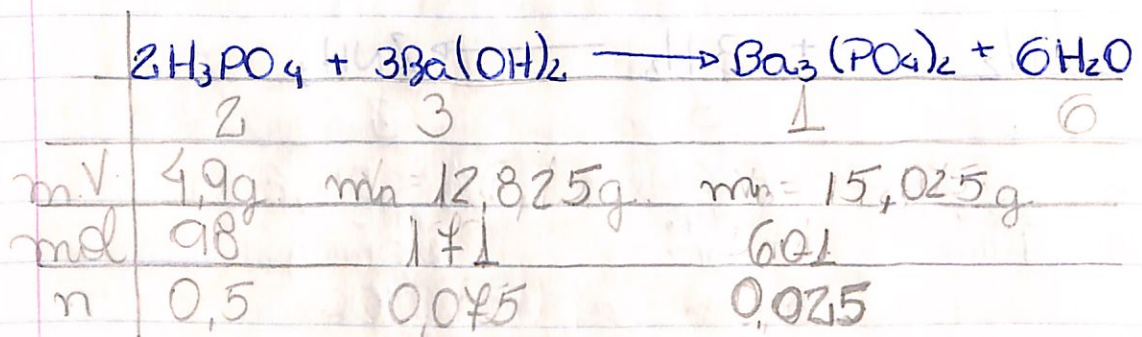 2H₃PO₄ + 3Ba(OH)₂ ⟶ Ba₃(PO₄)₂ + 6H₂O
2 3 1 6
m.V 4,9g m= 12,825g m= 15,025g
mol 98 171 601
n 0,5 0,075 0,025